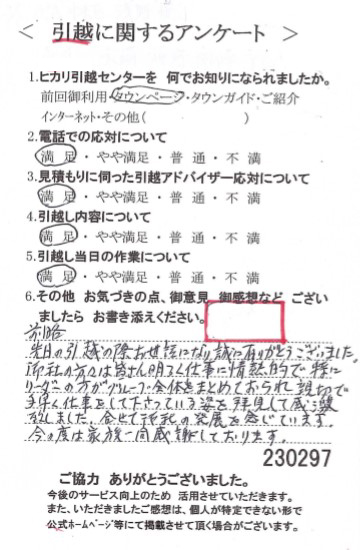 ＜ 引越に関するアンケート ＞
1.ヒカリ引越センターを 何でお知りになられましたか。
前回御利用・タウンページ・タウンガイド・ご紹介
インターネット・その他( )
2.電話での応対について
満 足 ・ やや満足 ・ 普 通 ・ 不 満
3.見積もりに伺った引越アドバイザー応対について
満 足 ・ やや満足 ・ 普 通 ・ 不 満
4.引越し内容について
満 足 ・ やや満足 ・ 普 通 ・ 不 満
5.引越し当日の作業について
満 足 ・ やや満足 ・ 普 通 ・ 不 満
6.その他 お気づきの点、御意見 御感想など ござい
ましたら お書き添えください。
前略
先日の引越の際お世話になり誠に有りがとうございました。
御社の方々は皆さん明るく仕事に情熱的で特に
リーダーの方がグループ全体をまとめておられ親切で
手早く仕事をして下さっている姿を拝見して感激
致しました。合せて御社の発展を感じています。
今の度は家族一同感謝しております。
230297
ご協力 ありがとうございました。
今後のサービス向上のため 活用させていただきます。
また、いただきましたご感想は、個人が特定できない形で
公式ホームページ等にて掲載させて頂く場合がございます。